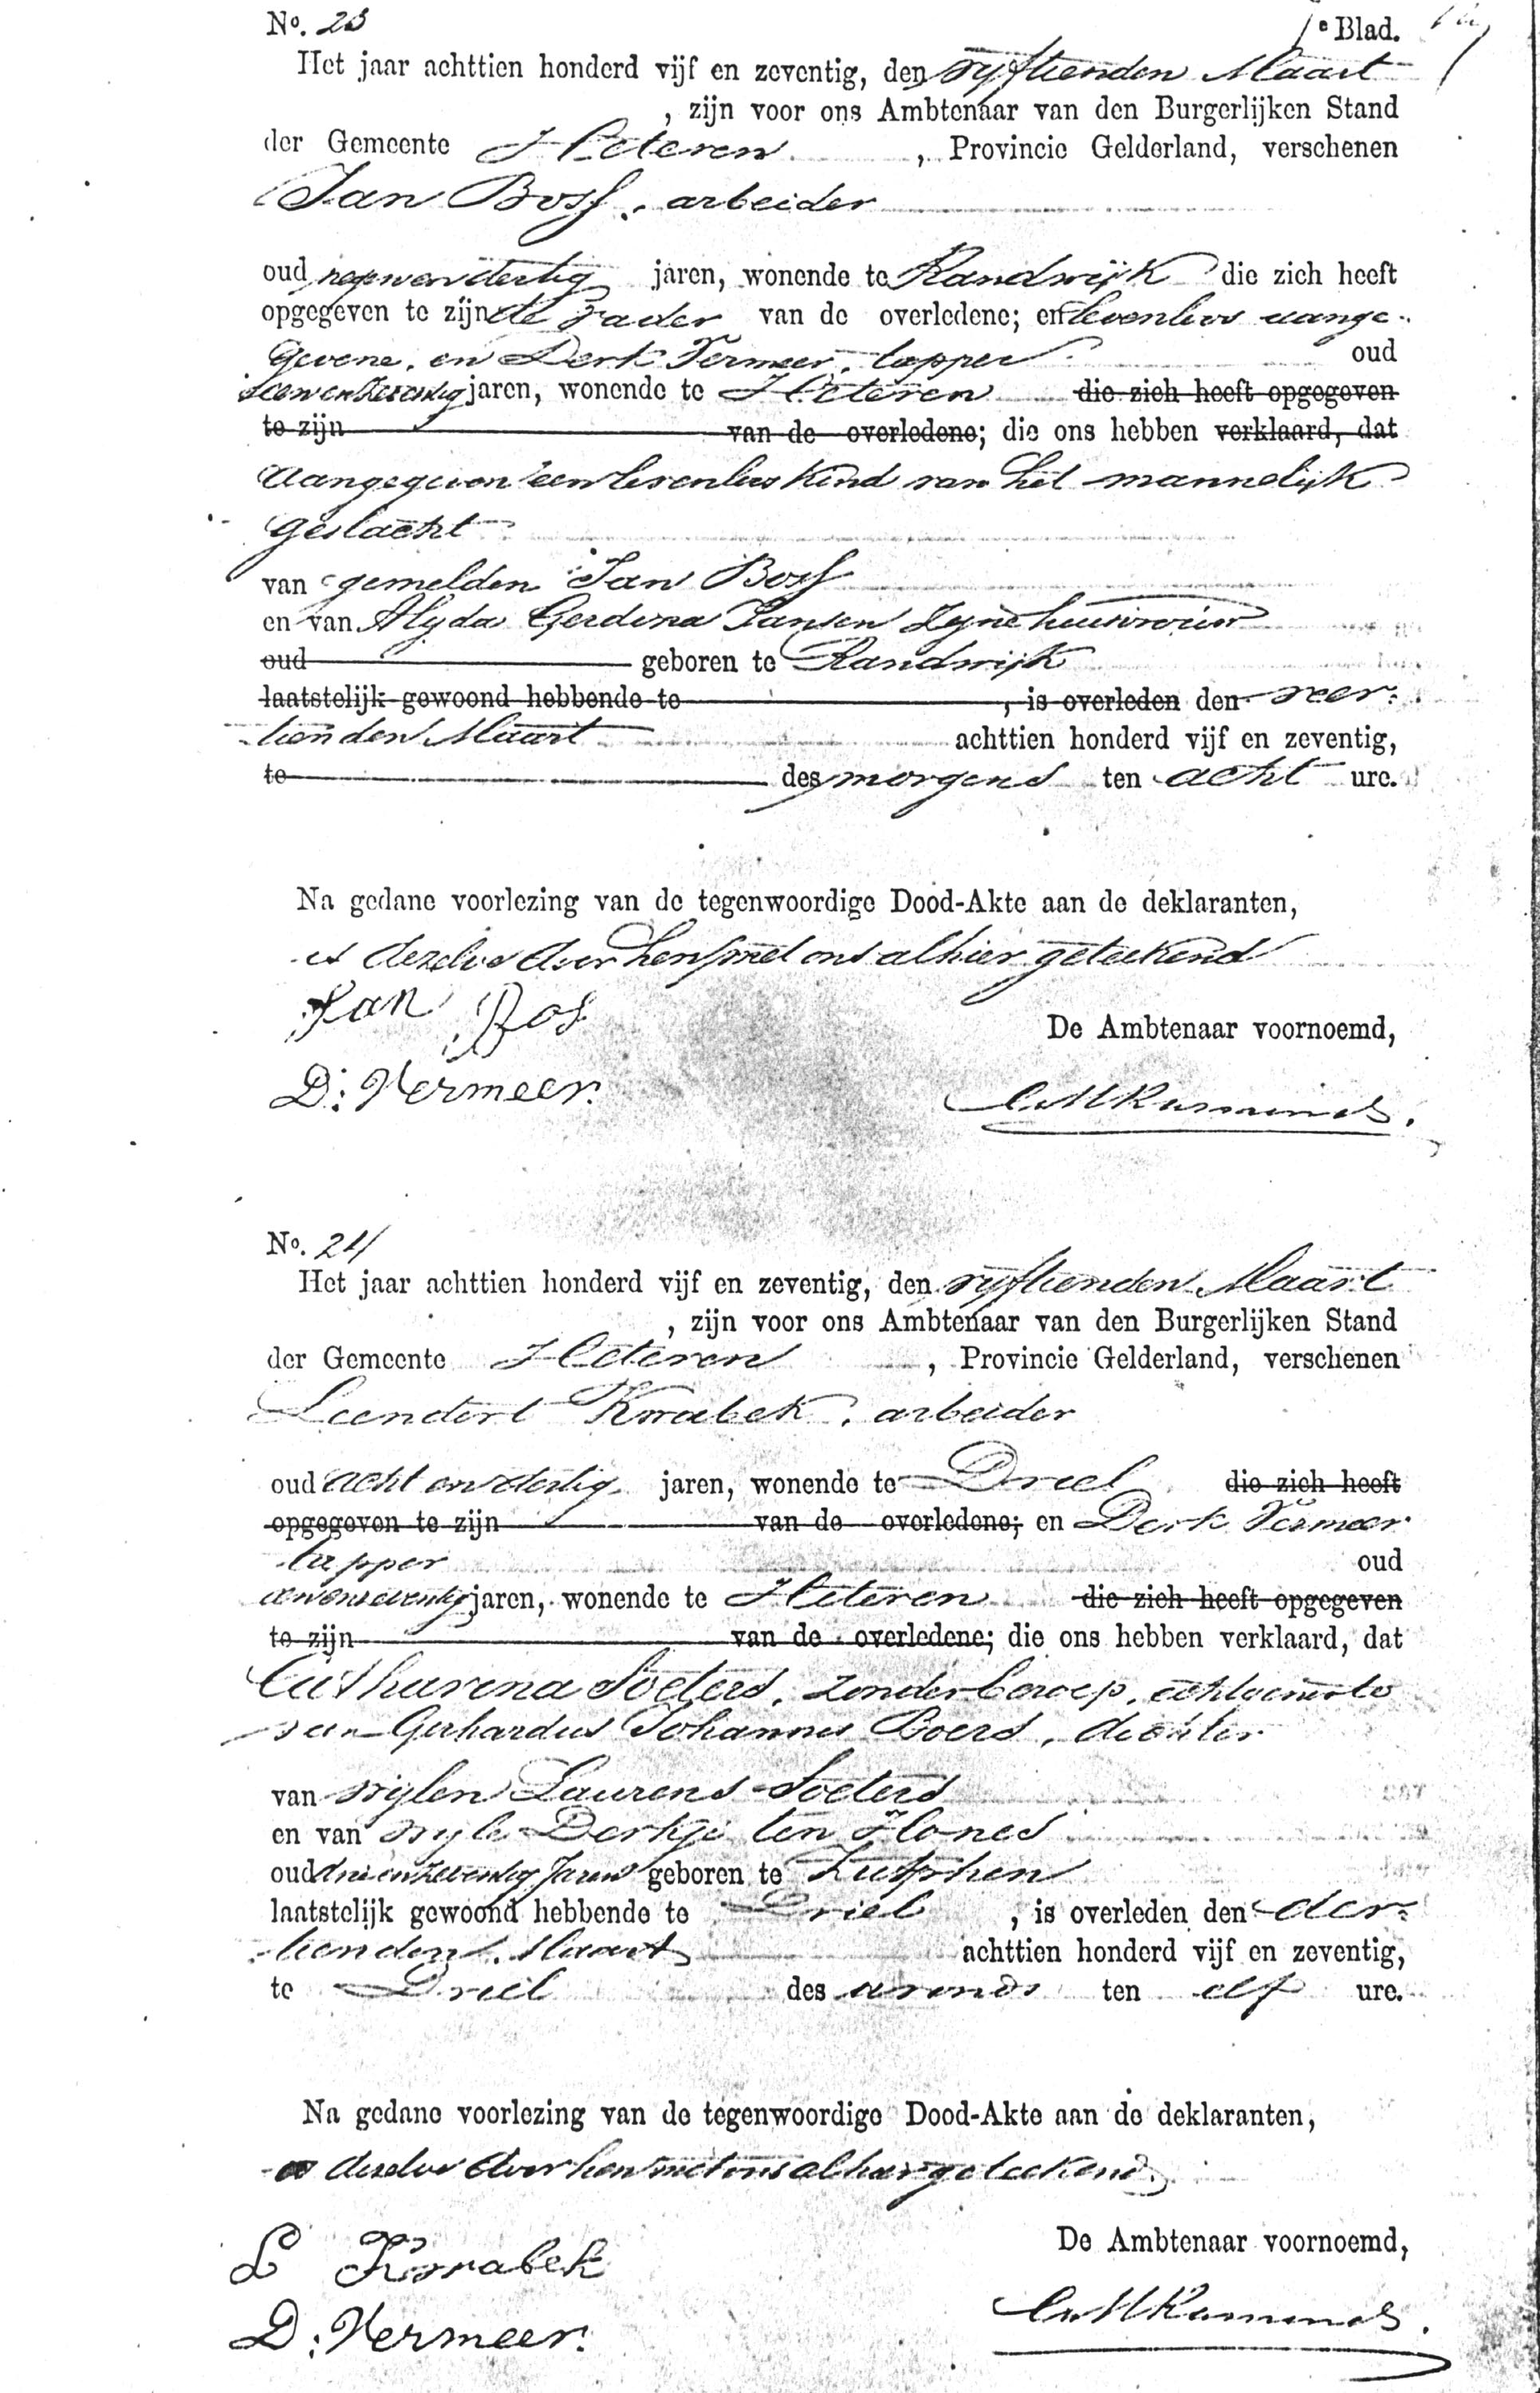 No. 23
e Blad.
Het jaar achttien honderd vijf en zeventig, den vyftienden Maart
, zijn voor ons Ambtenaar van den Burgerlijken Stand
der Gemeente Heteren , Provincie Gelderland, verschenen
Jan Boss, arbeider
oud negenendertig jaren, wonende te Randwijk die zich heeft
opgegeven te zijn de vader van de overledene; en levenloos aange-
gevene, en Derk Vermeer, tapper oud
jaren, wonende te Heteren die zich heeft opgegeven
te zijn van de overledene; die ons hebben verklaard, dat
aangegeven een levenloos kind van het mannelijk
geslacht
van gemelden Jan Boss
en van Alyda Gerdina Jansen zyne huisvrouw
oud geboren te Randwijk
laatstelijk gewoond hebbende te , is overleden den veer-
tienden Maart achttien honderd vijf en zeventig,
te des morgens ten acht ure.
Na gedane voorlezing van de tegenwoordige Dood-Akte aan de deklaranten,
is dezelve door hen met ons alhier geteekend
Jan Bos
De Ambtenaar voornoemd,
D: Vermeer.
No. 24
Het jaar achttien honderd vijf en zeventig, den vyftienden Maart
, zijn voor ons Ambtenaar van den Burgerlijken Stand
der Gemeente Heteren , Provincie Gelderland, verschenen
Leendert Kwabek, arbeider
oud acht en dertig jaren, wonende te Driel die zich heeft
opgegeven te zijn van de overledene; en Derk Vermeer
tapper oud
jaren, wonende te Heteren die zich heeft opgegeven
te zijn van de overledene; die ons hebben verklaard, dat
Catharina Soeters, zonder beroep, echtgenoote
van Gerhardus Johannes Boers, dochter
van wylen Laurens Soeters
en van wyle Derkje ten Hones
oud drieenzeventig Jaren geboren te Zutphen
laatstelijk gewoond hebbende te Driel , is overleden den der-
tienden Maart achttien honderd vijf en zeventig,
te Driel des avonds ten elf ure.
Na gedane voorlezing van de tegenwoordige Dood-Akte aan de deklaranten,
is dezelve door hen met ons alhier geteekend.
L Kwabek
De Ambtenaar voornoemd,
D: Vermeer.